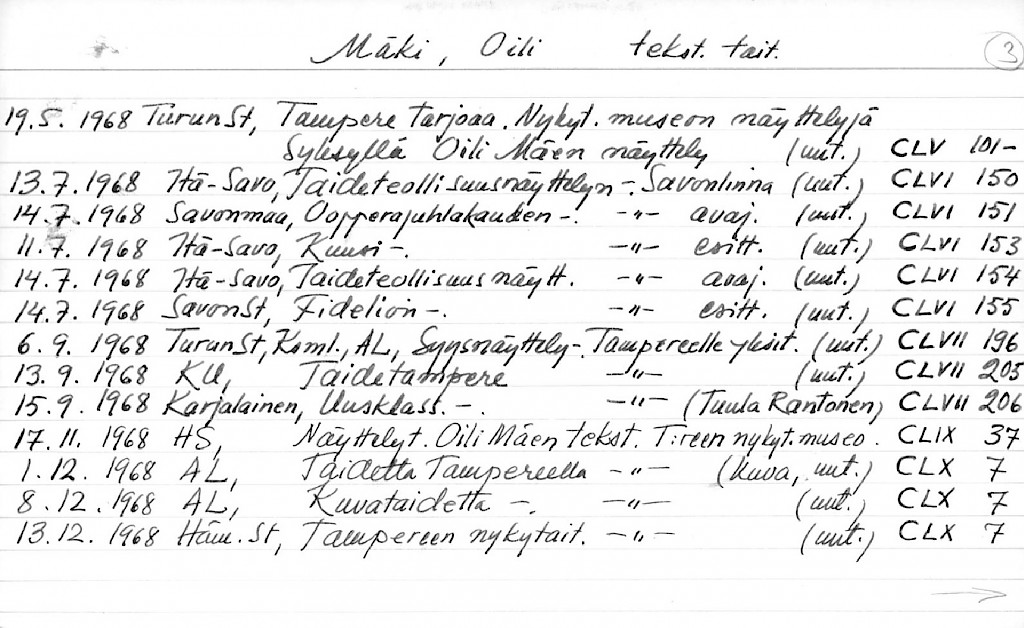 Mäki, Oili tekst. tait. 3
19.5. 1968 TurunSt, Tampere tarjoaa. Nykyt. museon näyttelyjä
Syksyllä Oili Mäen näyttely (uut.) CLV 101-
13.7.1968 Itä-Savo, Taideteollisuusnäyttelyn -. Savonlinna (uut.) CLVI 150
14.7.1968 Savonmaa, Oopperajuhlakauden -. -"- avaj. (uut.) CLVI 151
11.7. 1968 Itä-Savo, Kuusi -. -"- esitt. (uut.) CLVI 153
14.7. 1968 Itä-Savo, Taideteollisuusnäytt. -"- avaj. (uut.) CLVI 154
14.7. 1968 SavonSt, Fidelion -. -"- esitt. (uut.) CLVI 155
6.9. 1968 TurunSt, Koml., AL, Syysnäyttely -. Tampereelle yksit. (uut.) CLVII 196
13.9. 1968 KU, Taidetampere -"- (uut.) CLVII 205
15.9. 1968 Karjalainen, Uusklass. -. -"- (Tuula Rantonen) CLVII 206
17.11. 1968 HS, Näyttelyt. Oili Mäen tekst. T:reen nykyt.museo. CLIX 37
1.12. 1968 AL, Taidetta Tampereella -"- (kuva, uut.) CLX 7
8.12.1968 AL, Kuvataidetta -. -"- (uut.) CLX 7
13.12. 1968 Häm. St, Tampereen nykytait. -"- (uut.) CLX 7
→